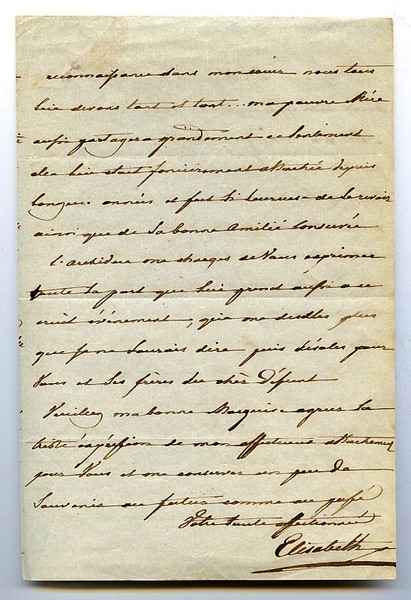 reconnaissance dans mon coeur nous tous
lui devons tant et tant.. ma pauvre Mère
aussi partagera grandement ce sentiment
elle lui étant foncièrement attachée depuis
longues années et fort heureuse de le revoir
ainsi que de sa bonne Amitié conservée
l'archiduc me charge de Vous exprimer
toute la part que lui prend aussi a ce
cruel événement, qui me désole plus
que je ne saurais dire, puis désolée pour
Vous et ses frères du chèr Défunt
Veuillez ma bonne Marquise agréer la
triste expression de mon affectueux attachement
pour Vous et me conserver un peu de
Souvenir au futur comme au passé
Votre toute affectionnée
Elisabeth